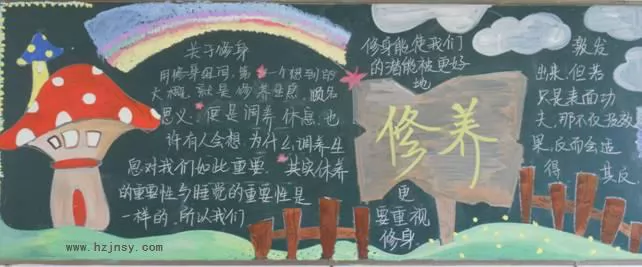 关于修身
用修身组词,第一个想到的
大概就是修养生息,顾名
思义,便是调养休息,也
许有人会想,为什么调养生
息对我们如此重要,其实休养
的重要性与睡觉的重要性是
一样的,所以我们
更
要重视
修身
修养
修身能使我们
的潜能被更好
地
激发
出来,但若
只是表面功
夫,那不仅没效
果,反而会适
得其反
www.hzjnsy.com